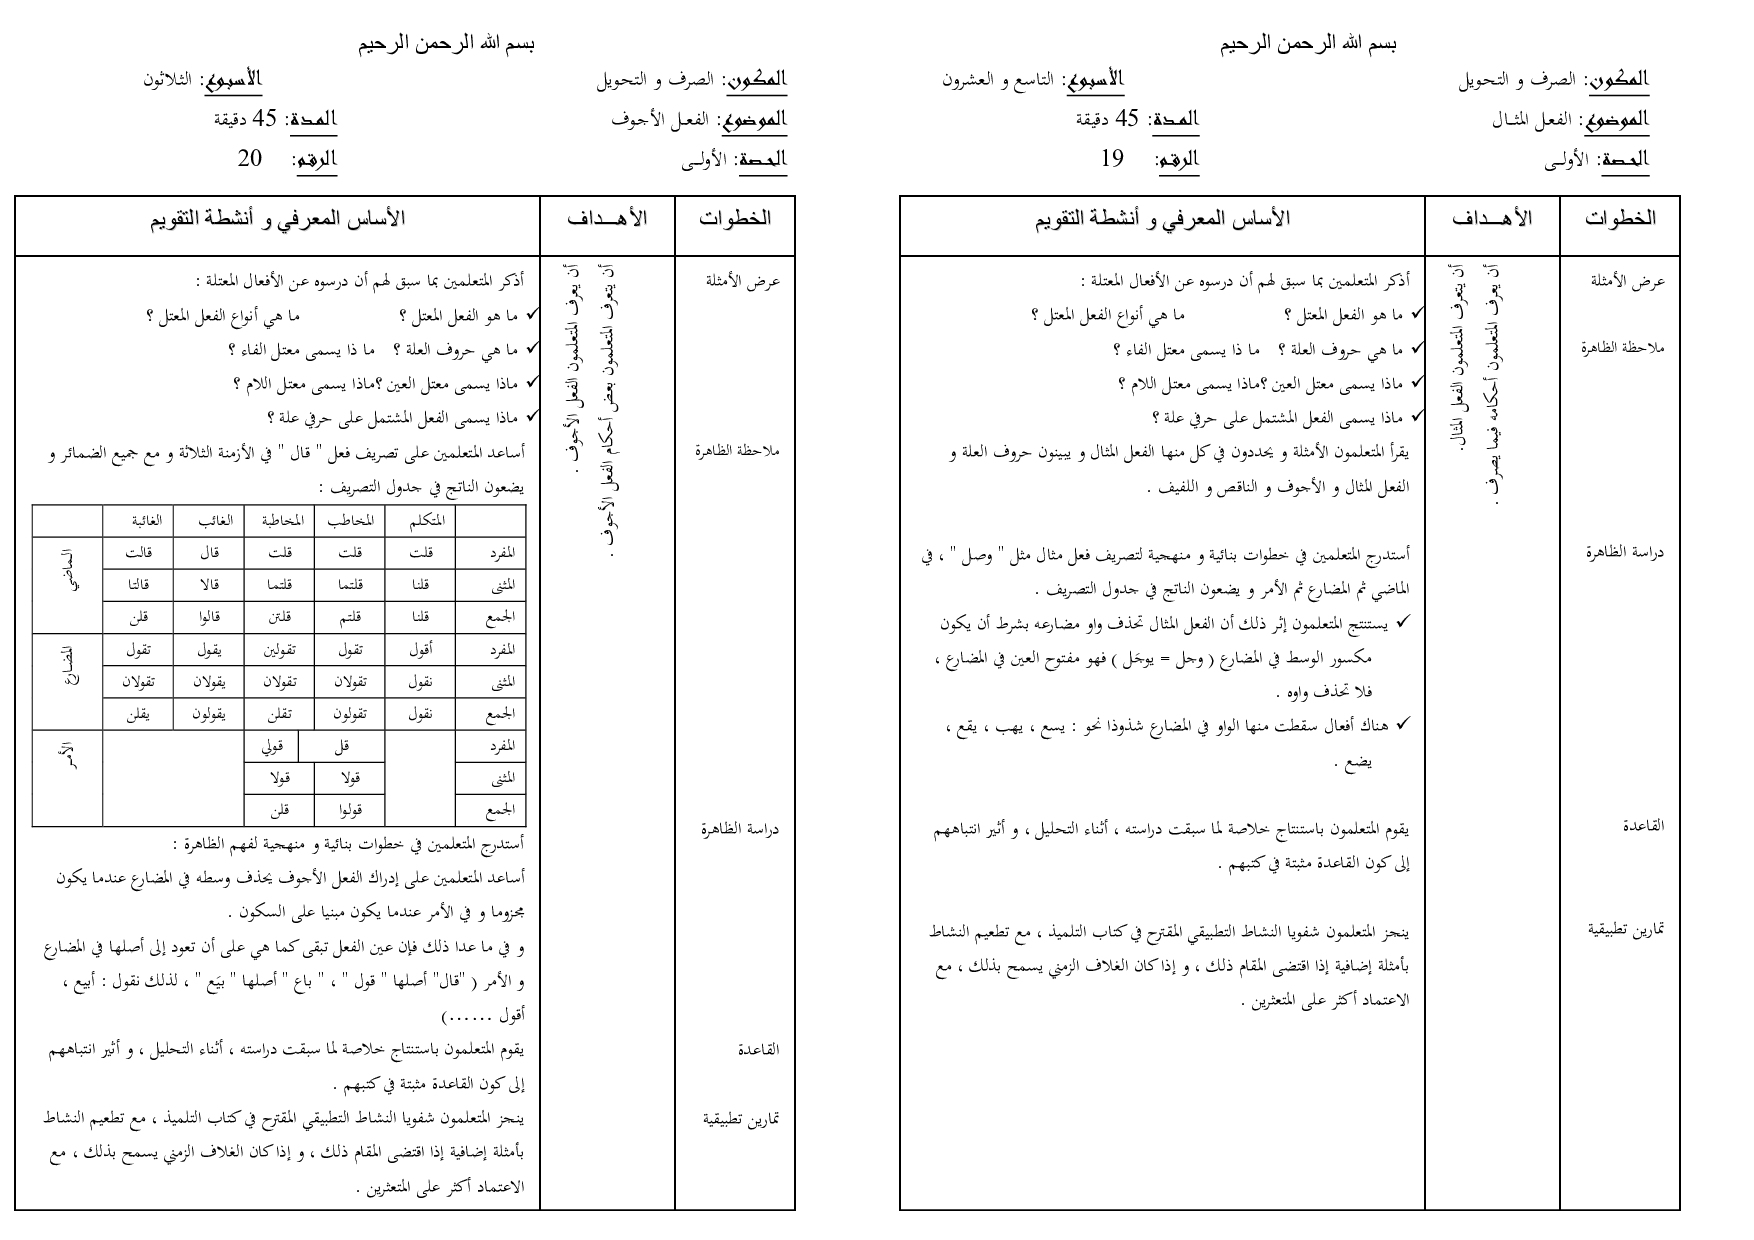 بسم الله الرحمن الرحيم
المكون: الصرف و التحويل
الأسبوع: التاسع و العشرون
الموضوع: الفعل المثـال
المدة: 45 دقيقة
الحصة: الأولـى
الرقم: 19
الخطوات
الأهـــداف
الأساس المعرفي و أنشطة التقويم
عرض الأمثلة
ملاحظة الظاهرة
دراسة الظاهرة
القاعدة
تمارين تطبيقية
أن يعرف المتعلمون أحكامه فيما يصرف .
أن يتعرف المتعلمون الفعل المثال.
أذكر المتعلمين بما سبق لهم أن درسوه عن الأفعال المعتلة :
✓ ما هو الفعل المعتل ؟ ما هي أنواع الفعل المعتل ؟
✓ ما هي حروف العلة ؟ ما ذا يسمى معتل الفاء ؟
✓ ماذا يسمى معتل العين ؟ماذا يسمى معتل اللام ؟
✓ ماذا يسمى الفعل المشتمل على حرفي علة ؟
يقرأ المتعلمون الأمثلة و يحددون في كل منها الفعل المثال و يبينون حروف العلة و
الفعل المثال و الأجوف و الناقص و اللفيف .
أستدرج المتعلمين في خطوات بنائية و منهجية لتصريف فعل مثال مثل " وصل " ، في
الماضي ثم المضارع ثم الأمر و يضعون الناتج في جدول التصريف .
✓ يستنتج المتعلمون إثر ذلك أن الفعل المثال تحذف واو مضارعه بشرط أن يكون
مكسور الوسط في المضارع ( وحل = يوحَل ) فهو مفتوح العين في المضارع ،
فلا تحذف واوه .
✓ هناك أفعال سقطت منها الواو في المضارع شذوذا نحو : يسع ، يهب ، يقع ،
يضع .
يقوم المتعلمون باستنتاج خلاصة لما سبقت دراسته ، أثناء التحليل ، و أثير انتباههم
إلى كون القاعدة مثبتة في كتبهم .
ينجز المتعلمون شفويا النشاط التطبيقي المقترح في كتاب التلميذ ، مع تطعيم النشاط
بأمثلة إضافية إذا اقتضى المقام ذلك ، و إذا كان الغلاف الزمني يسمح بذلك ، مع
الاعتماد أكثر على المتعثرين .
بسم الله الرحمن الرحيم
المكون: الصرف و التحويل
الأسبوع: الثلاثون
الموضوع: الفعـل الأجوف
المدة: 45 دقيقة
الحصة: الأولـى
الرقم: 20
الخطوات
الأهـــداف
الأساس المعرفي و أنشطة التقويم
عرض الأمثلة
ملاحظة الظاهرة
دراسة الظاهرة
القاعدة
تمارين تطبيقية
أن يتعرف المتعلمون بعض أحكام الفعل الأجوف .
أن يعرف المتعلمون الفعل الأجوف .
أذكر المتعلمين بما سبق لهم أن درسوه عن الأفعال المعتلة :
✓ ما هو الفعل المعتل ؟ ما هي أنواع الفعل المعتل ؟
✓ ما هي حروف العلة ؟ ما ذا يسمى معتل الفاء ؟
✓ ماذا يسمى معتل العين ؟ماذا يسمى معتل اللام ؟
✓ ماذا يسمى الفعل المشتمل على حرفي علة ؟
أساعد المتعلمين على تصريف فعل " قال " في الأزمنة الثلاثة و مع جميع الضمائر و
يضعون الناتج في جدول التصريف :
المتكلم المخاطب المخاطبة الغائب الغائبة
المفرد قلت قلت قلت قال قالت
الماضي
المثنى قلنا قلتما قلتما قالا قالتا
الجمع قلنا قلتم قلتن قالوا قلن
المفرد أقول تقول تقولين يقول تقول
المضارع
المثنى نقول تقولان تقولان يقولان تقولان
الجمع نقول تقولون تقلن يقولون يقلن
المفرد قل قولي
الأمر
المثنى قولا قولا
الجمع قولوا قلن
أستدرج المتعلمين في خطوات بنائية و منهجية لفهم الظاهرة :
أساعد المتعلمين على إدراك الفعل الأجوف يحذف وسطه في المضارع عندما يكون
مجزوما و في الأمر عندما يكون مبنيا على السكون .
و في ما عدا ذلك فإن عين الفعل تبقى كما هي على أن تعود إلى أصلها في المضارع
و الأمر ( "قال" أصلها " قول " ، " باع " أصلها " بيَع " ، لذلك نقول : أبيع ،
أقول ......)
يقوم المتعلمون باستنتاج خلاصة لما سبقت دراسته ، أثناء التحليل ، و أثير انتباههم
إلى كون القاعدة مثبتة في كتبهم .
ينجز المتعلمون شفويا النشاط التطبيقي المقترح في كتاب التلميذ ، مع تطعيم النشاط
بأمثلة إضافية إذا اقتضى المقام ذلك ، و إذا كان الغلاف الزمني يسمح بذلك ، مع
الاعتماد أكثر على المتعثرين .